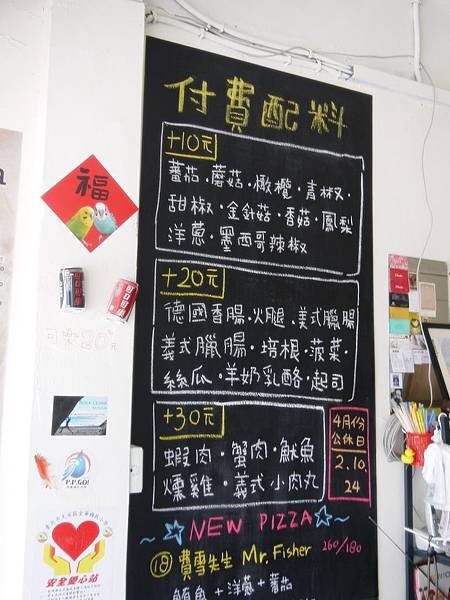 付費配料
+10元
蕃茄·蘑菇·橄欖·青椒·
甜椒·金針菇·香菇·鳳梨
洋蔥·墨西哥辣椒
+20元
德國香腸·火腿·美式臘腸
義式臘腸·培根·菠菜·
絲瓜·羊奶乳酪·起司
+30元
蝦肉·蟹肉·魷魚
燻雞·義式小肉丸
4月份
公休日
2.10.
24
~☆NEW PIZZA☆~
⑱費雪先生 Mr. Fisher 260/180
鮪魚+洋蔥+蕃茄
福
可樂20元
P.P.GO!
安全愛心站